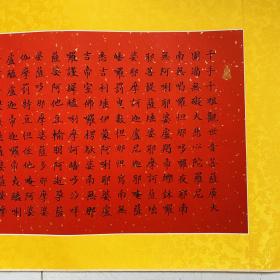 千手千眼觀世音菩薩廣大
圓滿無礙大悲心陀羅尼
南無喝囉怛那哆囉夜耶南
無阿唎耶婆盧羯帝爍鉢囉
耶菩提薩埵婆耶摩訶薩埵
婆耶摩訶迦盧尼迦耶唵薩
皤囉罰曳數怛那怛寫南無
悉吉利埵伊蒙阿唎耶婆盧
吉帝室佛囉楞馱婆南無那
囉謹墀醯唎摩訶皤哆沙咩
薩婆阿他豆輸朋阿逝孕薩
婆薩哆那摩婆薩多那摩婆
伽摩罰特豆怛侄他唵阿婆
盧醯盧迦帝迦羅帝夷醯唎